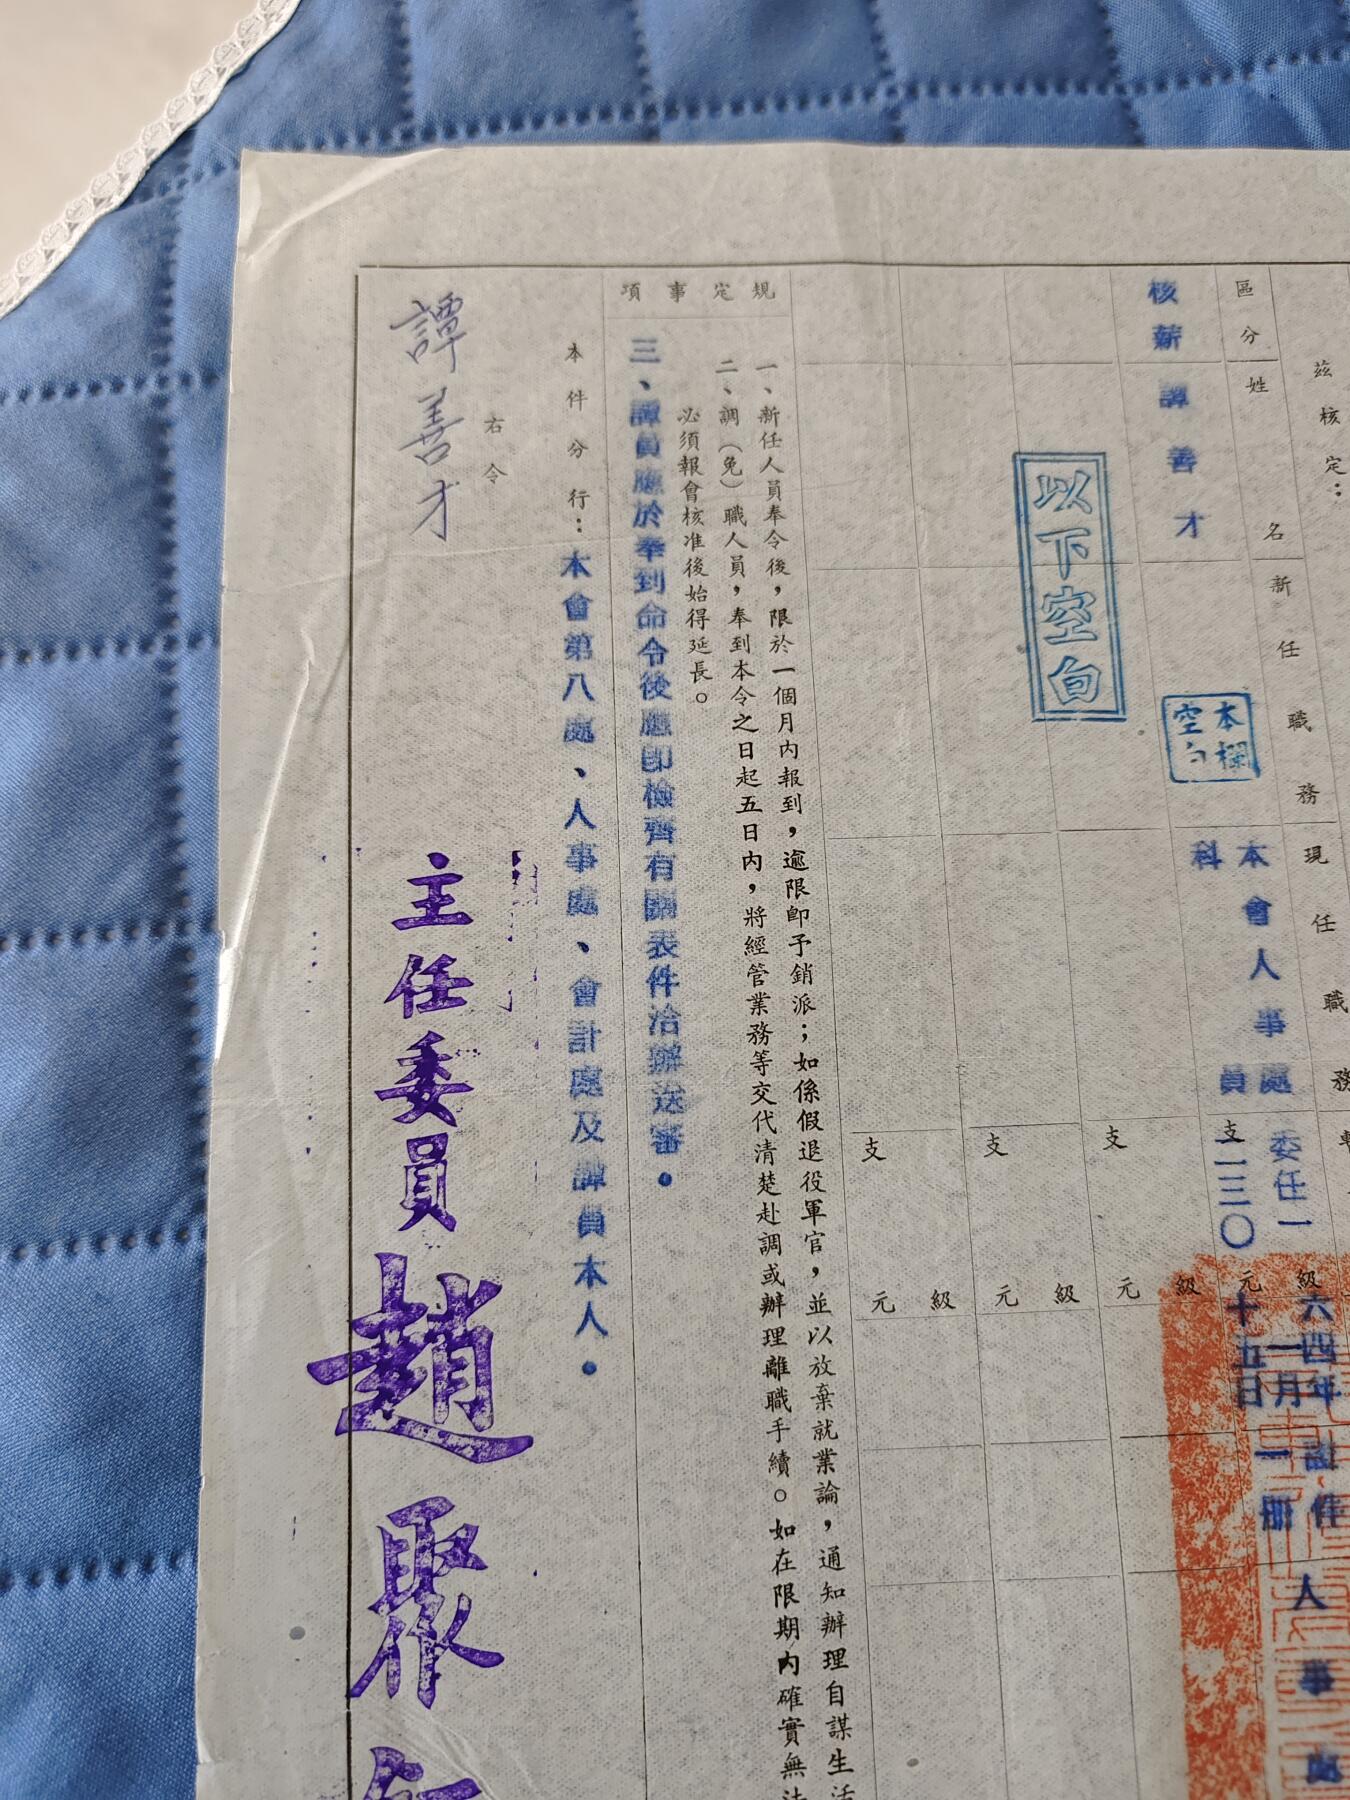 茲核定：
區分
姓名
新任職務
現任職務
核薪
譚善才
本欄空白
本會人事處
科員
委任一級
支二三〇元
六四年一月十五日
證件一冊
人事處
以下空白
支
元
級
支
元
級
支
元
級
規定事項
一、新任人員奉令後，限於一個月內報到，逾限即予銷派；如係假退役軍官，並以放棄就業論，通知辦理自謀生活
二、調（免）職人員，奉到本令之日起五日內，將經管業務等交代清楚赴調或辦理離職手續。如在限期內確實無法
必須報會核准後始得延長。
三、譚員應於奉到命令後應即檢齊有關表件洽辦送審。
本件分行：本會第八處、人事處、會計處及譚員本人。
右令
譚善才
主任委員趙聚